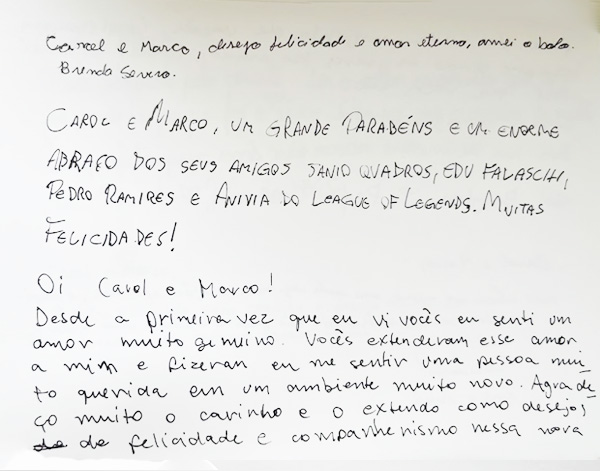 Carol e Marco, desejo felicidade e amor eterno, amei o bolo.
Brenda Severo.
CAROL E MARCO, UM GRANDE PARABÉNS E UM ENORME
ABRAÇO DOS SEUS AMIGOS JANIO QUADROS, EDU FALASCHI,
PEDRO RAMIRES E ANIVIA DO LEAGUE OF LEGENDS. MUITAS
FELICIDADES!
Oi Carol e Marco!
Desde a primeira vez que eu vi vocês eu senti um
amor muito genuino. Vocês extenderam esse amor
a mim e fizeram eu me sentir uma pessoa mui
to querida em um ambiente muito novo. Agrade-
ço muito o carinho e o extendo como desejos
de felicidade e companheirismo nessa nova